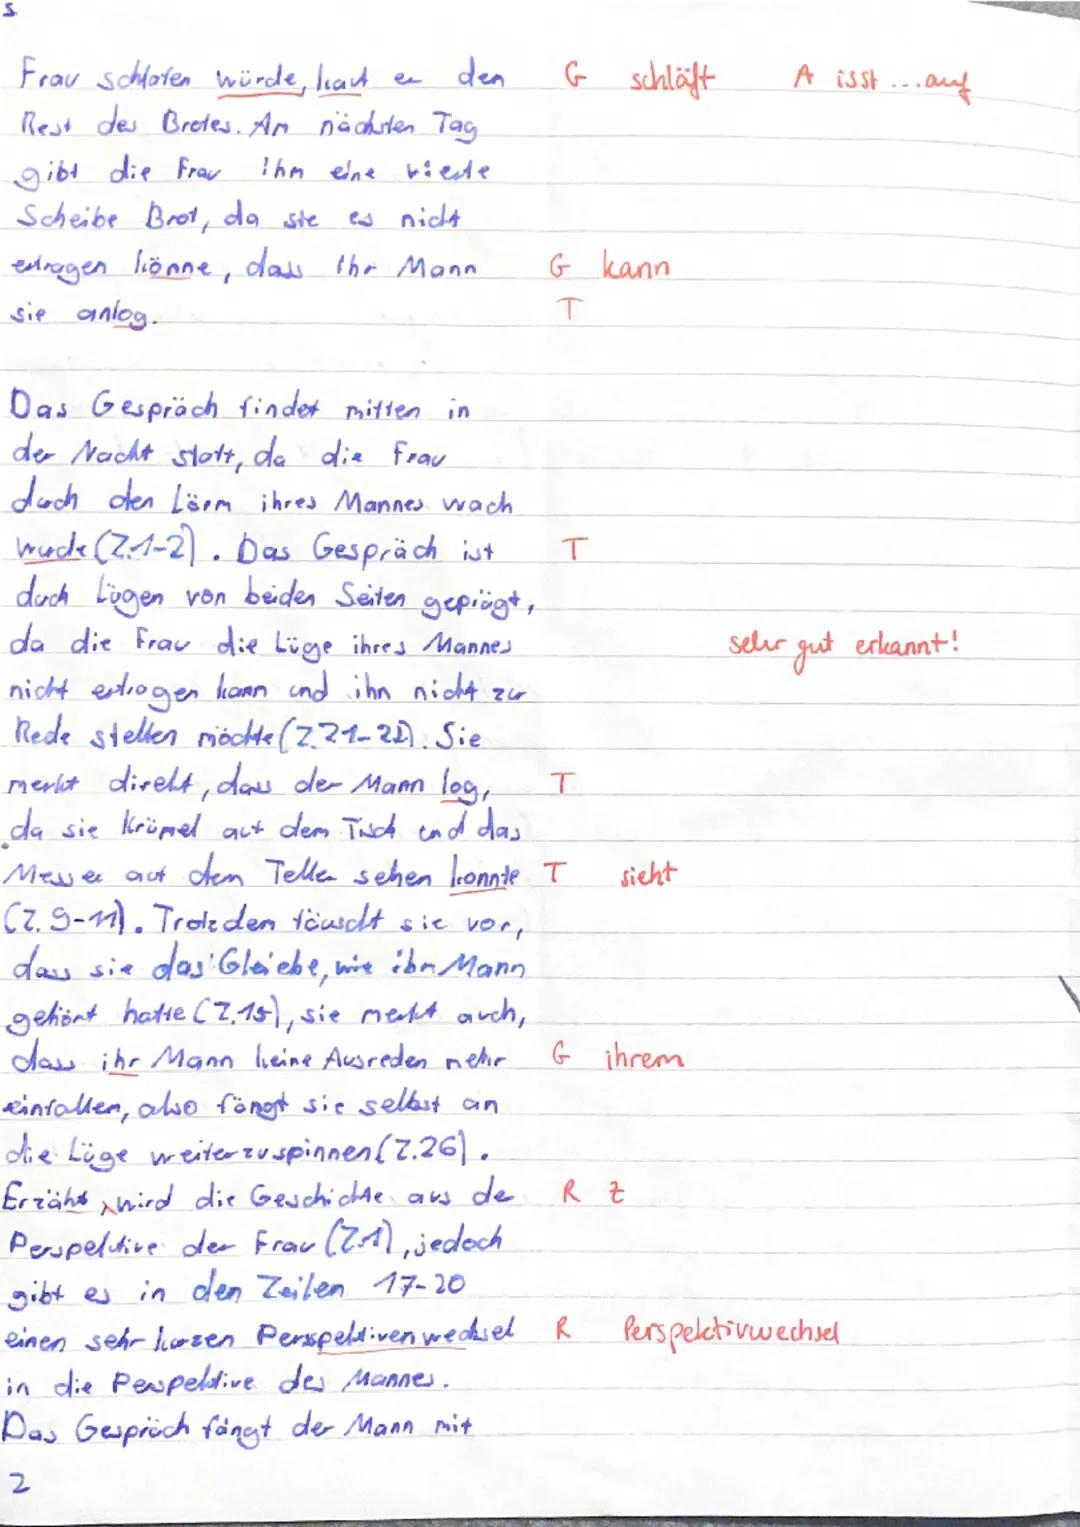 s
Frau schlafen würde, kaut er den G schläft A isst ... auf
Rest des Brotes. Am nächsten Tag
gibt die Frau ihm eine vierte
Scheibe Brot, da sie es nicht
ertragen könne, dass ihr Mann G kann
sie anlog. T
Das Gespräch findet mitten in
der Nacht statt, da die Frau
durch den Lärm ihres Mannes wach
wurde (Z.1-2). Das Gespräch ist T
durch Lügen von beiden Seiten geprägt,
da die Frau die Lüge ihres Mannes sehr gut erkannt!
nicht ertragen kann und ihn nicht zur
Rede stellen möchte (Z.21-22). Sie
merkt direkt, dass der Mann log, T
da sie Krümel auf dem Tisch und das
Messer auf dem Teller sehen konnte T sieht
(Z. 9-11). Trotzdem täuscht sie vor,
dass sie das Gleiche, wie ihr Mann
gehört hatte (Z.15), sie merkt auch,
dass ihr Mann keine Ausreden mehr G ihrem
einfallen, also fängt sie selbst an
die Lüge weiterzuspinnen (Z.26).
Erzählt wird die Geschichte aus de R Z
Perspektive der Frau (Z.1), jedoch
gibt es in den Zeilen 17-20
einen sehr kurzen Perspektivenwechsel R Perspektivwechsel
in die Perspektive des Mannes.
Das Gespräch fängt der Mann mit
2